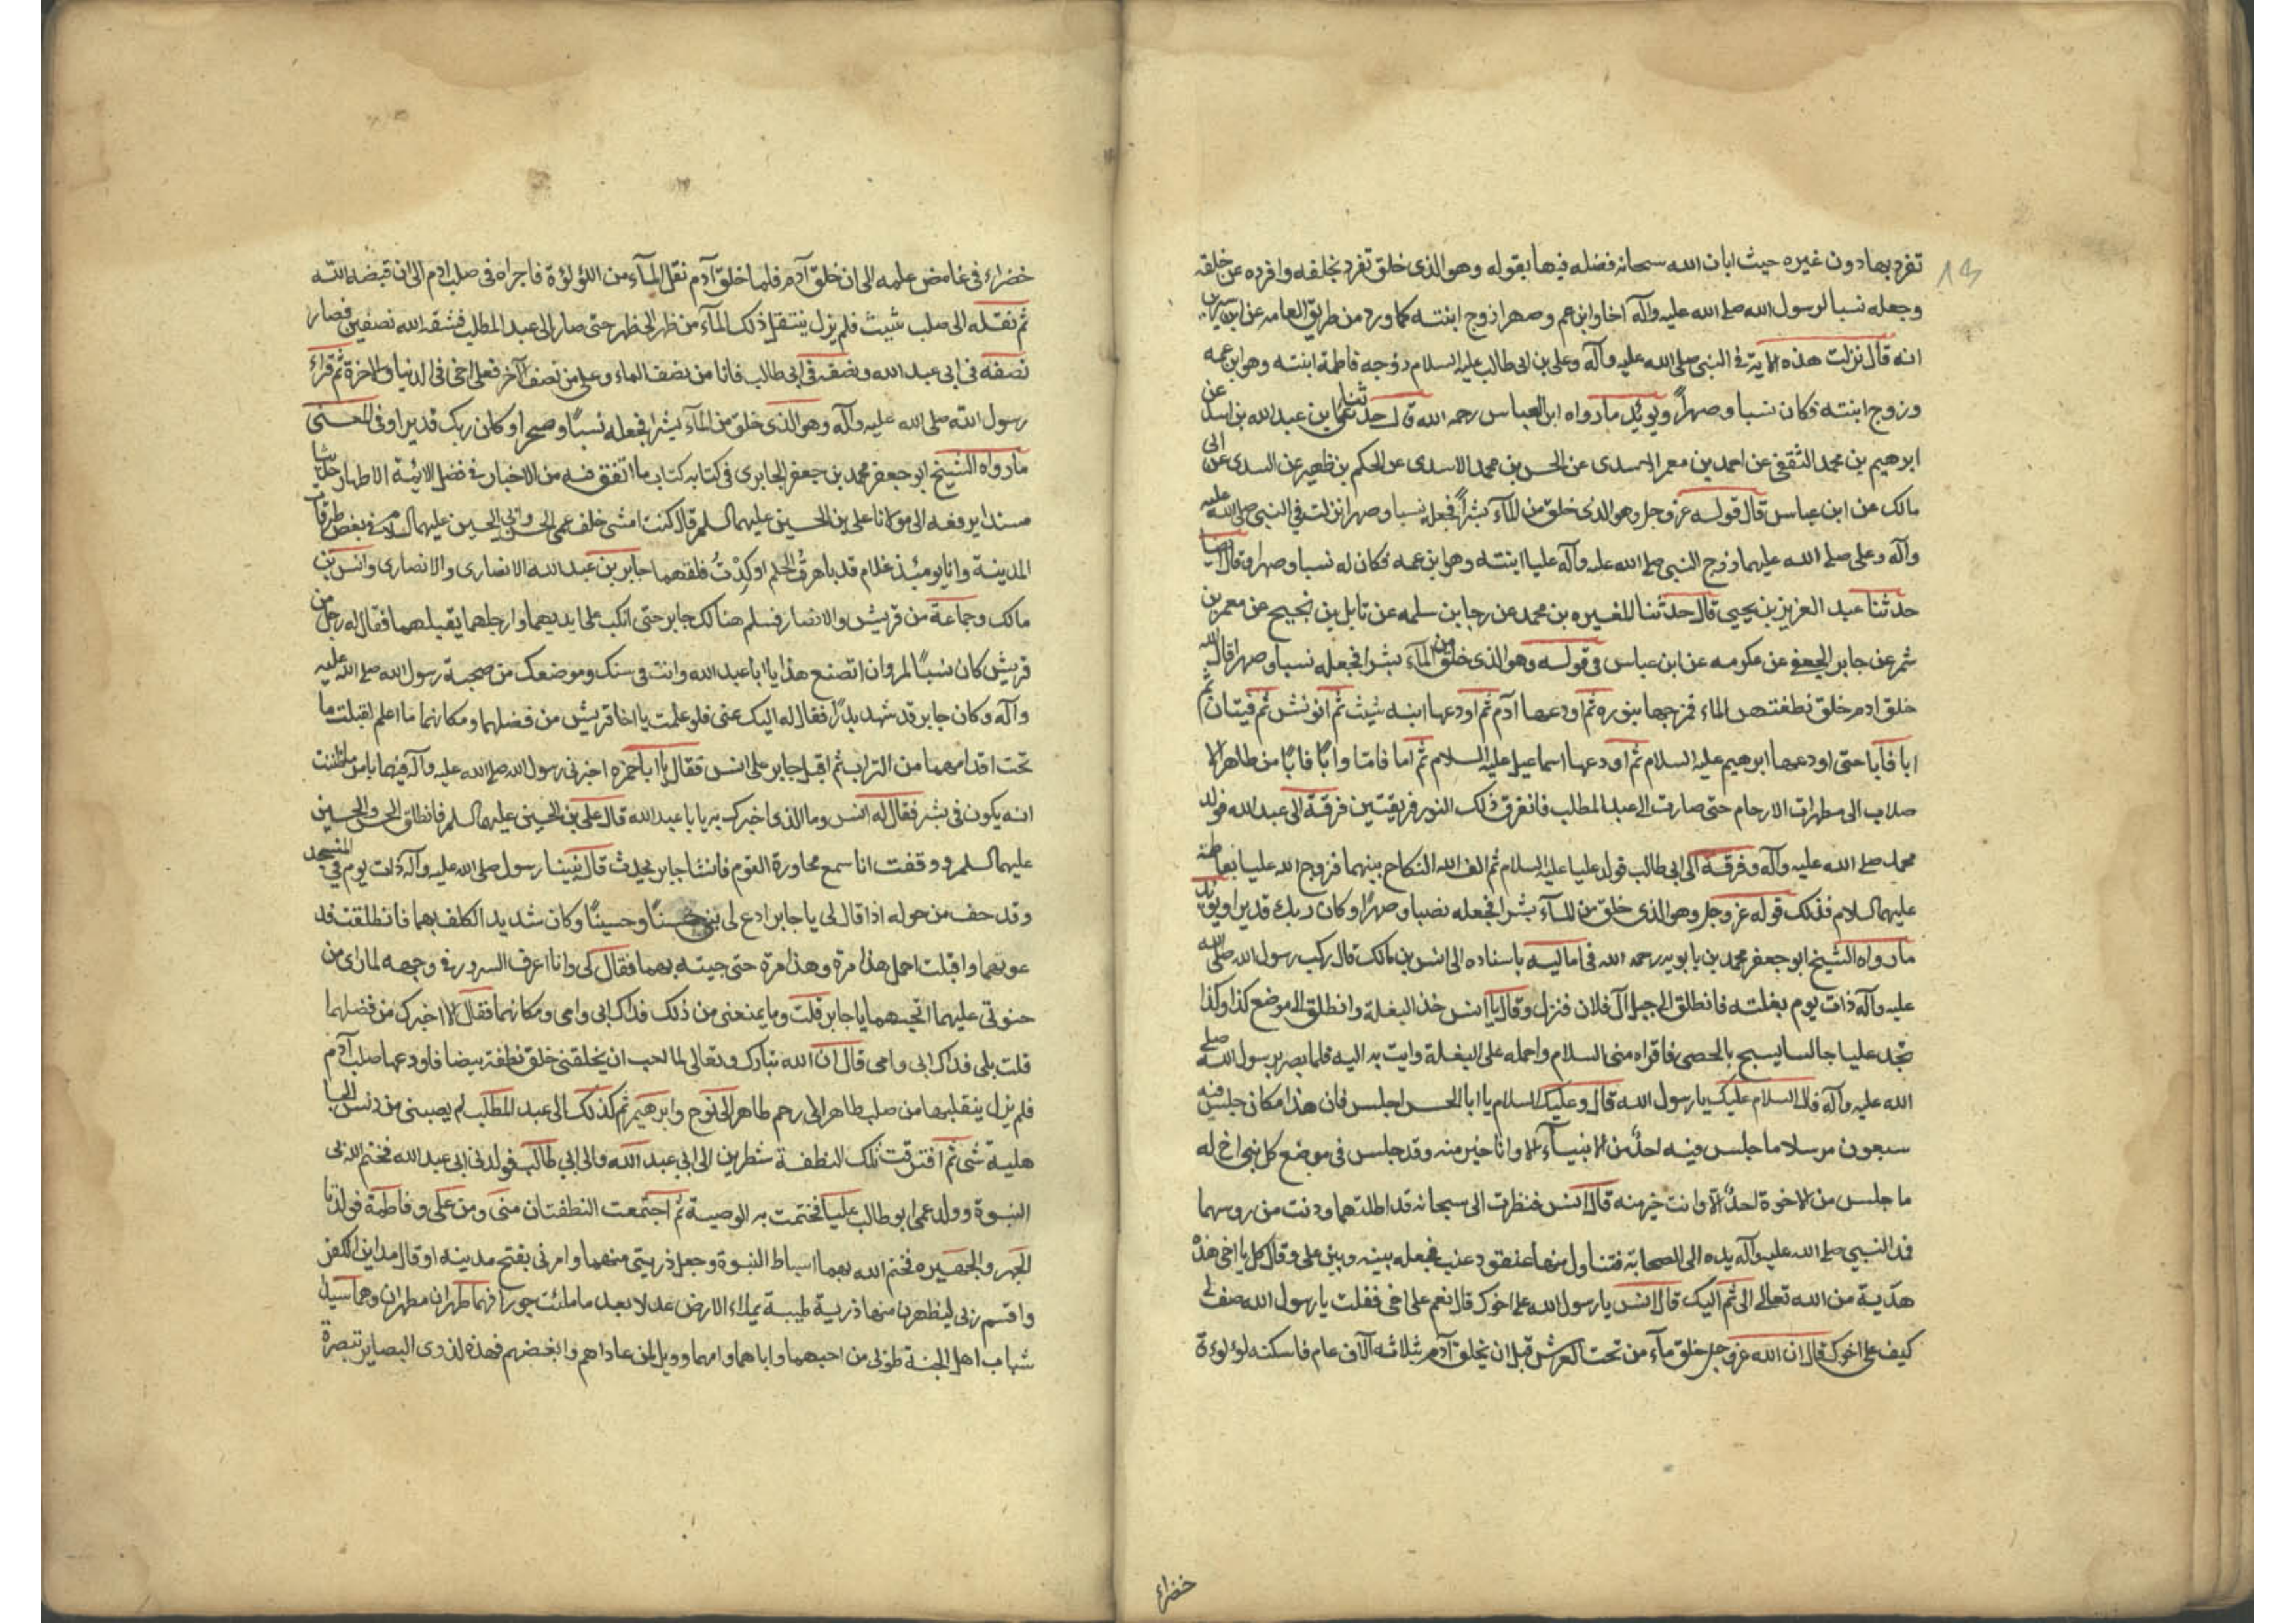 تفرد بها دون غيره حيث ابان الله سبحانه فضله فيها بقوله وهو الذى خلق تفرد بخلقه وافرده عن خلقه
وجعله نسبا لرسول الله صلى الله عليه وآله اخا وابن عم وصهرا زوج ابنته كما ورد من طريق العامه عن ابن سيرين
انه قال نزلت هذه الاية فى النبى صلى الله عليه وآله وعلى بن ابى طالب عليه السلام زوجه فاطمة ابنته وهو ابن عمه
وزوج ابنته فكان نسبا وصهراً ويويد ما رواه ابن العباس رحمه الله قال حدثنا على بن عبد الله بن اسد عن
ابرهيم بن محمد الثقفى عن احمد بن معمر الاسدى عن الحسن بن محمد الاسدى عن الحكم بن ظهير عن السدى عن ابى
مالك عن ابن عباس قال قوله عز وجل وهو الذى خلق من المآء بشراً فجعله نسبا وصهرا نزلت فى النبى صلى الله عليه
وآله وعلى صلى الله عليهما زوج النبى صلى الله عليه وآله عليا ابنته وهو ابن عمه فكان له نسبا وصهرا وقال ايضا
حدثنا عبد العزيز بن يحيى قال حدثنا المغيره بن محمد عن رجا بن سلمه عن نايل بن نجيح عن معمر بن
شمر عن جابر الجعفى عن عكرمه عن ابن عباس فى قوله وهو الذى خلق من المآء بشرا فجعله نسبا وصهرا قال الله
خلق ادم خلق نطفة من الماء فمزجها بنوره ثم اودعها آدم ثم اودعها ابنه شيث ثم انوش ثم قينان ثم
ابا فابا حتى اودعها ابرهيم عليه السلام ثم اودعها اسماعيل عليه السلام ثم اما فامّا وابًا فابًا من طاهر الا
صلاب الى مطهرات الارحام حتى صارت الى عبد المطلب فانفرق ذلك النور فريقتين فرقة الى عبد الله فولد
محمد صلى الله عليه وآله وفرقة الى ابى طالب فولد عليا عليه السلام ثم الف الله النكاح بينهما فزوج الله عليا بفاطمة
عليهما السلام فذلك قوله عز وجل وهو الذى خلق من المآء بشرا فجعله نصبا وصهرًا وكان ربك قديرا ويؤيد
ما رواه الشيخ ابو جعفر محمد بن بابويه رحمه الله فى اماليه باسناده الى انس بن مالك قال ركب رسول الله صلى الله
عليه وآله ذات يوم بغلته فانطلق الى جبل آل فلان فنزل وقال يا انس خذ البغلة وانطلق الى موضع كذا وكذا
تجد عليا جالسا يسبح بالحصى فاقراه منى السلام واحمله على البغلة وايت به اليه فلما بصر برسول الله صلى
الله عليه وآله قال السلام عليك يا رسول الله قال وعليك السلام يا ابا الحسن اجلس فان هذا مكان جلس فيه
سبعون مرسلا ما جلس فيه احدٌ من الانبيآء الا وانا خير منه وقد جلس فى موضع كل نبى اخ له
ما جلس من الاخوة احدٌ الا وانت خير منه قال انس فنظرت الى سحابة قد اظلتهما ودنت من روسهما
فمد النبي صلى الله عليه وآله يده الى السحابة فتناول منها عنقود عنب فجعله بينه وبين على وقال كل يا اخى هذه
هدّية من الله تعالى الى ثم اليك قال انس يا رسول الله على اخوك قال نعم على اخى فقلت يا رسول الله صف لى
كيف على اخوك قال ان الله عز وجل خلق مآء من تحت العرش قبل ان يخلق آدم بثلاثه آلاف عام فاسكنه لوءلوءة
خضراء
خضراء فى غامض علمه الى ان خلق آدم فلما خلق آدم نقل المآء من اللؤلؤة فاجراه فى صلب ادم الى ان قبضه الله
ثم نقله الى صلب شيث فلم يزل ينتقل ذلك المآء من ظهر الى ظهر حتى صار الى عبد المطلب فشقه الله نصفين فصار
نصفه فى ابى عبد الله ونصفه فى ابى طالب فانا من نصف الماء وعلى من نصف الآخر فعلى اخى فى الدنيا والاخرة ثم قراء
رسول الله صلى الله عليه وآله وهو الذى خلق من المآء بشرا فجعله نسبًا وصهرا وكان ربك قديرا وفى المعنى
ما رواه الشيخ ابو جعفر محمد بن جعفر الحايرى فى كتابه كتاب ما اتفق فيه من الاخبار فى فضل الائمة الاطهار حديثا
مسندا يرفعه الى مولانا على بن الحسين عليهما السلم قال كنت امشى خلف عمى الحسن وابى الحسين عليهما السلام فى بعض طرقات
المدينة وانا يومئذ غلام قد ناهزت الحلم او كدْتُ فلقهما جابر بن عبد الله الانصارى والانصارى وانس بن
مالك وجماعة من قريش والانصار فسلم هنالك جابر حتى انكب على ايديهما وارجلهما يقبلهما فقال له رجل من
قريش كان نسبًا لمروان اتصنع هذا يا ابا عبد الله وانت فى سنك وموضعك من صحبة رسول الله صلى الله عليه
وآله وكان جابر قد شهد بدرًا فقال له اليك عنى فلو علمت يا اخا قريش من فضلهما ومكانهما ما اعلم لقبلت ما
تحت اقدامهما من التراب ثم اقبل جابر على انس فقال يا ابا حمزه اخبرنى رسول الله صلى الله عليه وآله فيهما بامر ما ظننت
انه يكون فى بشر فقال له انس وما الذى اخبرك به يا با عبد الله قال على بن الحسين عليهما السلم فانطلق الحسن والحسين
عليهما السلم ووقفت انا اسمع محاورة القوم فانشا جابر يحدث قال بينا رسول صلى الله عليه وآله ذات يوم فى المسجد
وقد حف من حوله اذا قال لى يا جابر ادع لى بنى حسنًا وحسينًا وكان شديد الكلف بهما فانطلقت فد
عوتهما واقبلت احمل هذا مرة وهذا مرة حتى جيته بهما فقال لى وانا اعرف السرور فى وجهه لما راى من
حنوتى عليهما اتحبهما يا جابر قلت وما يمنعنى من ذلك فداك ابى وامى ومكانهما فقال الا اخبرك من فضلهما
قلت بلى فداك ابى وامى قال ان الله تبارك وتعالى لما احب ان يخلقنى خلق نطفة بيضا فاودعها صلب آدم
فلم يزل ينقلبها من صلب طاهر الى رحم طاهر الى نوح وابرهيم ثم كذلك الى عبد المطلب لم يصبنى من دنس الجا
هلية شى ثم افترقت تلك النطفة شطرين الى ابى عبد الله والى ابى طالب فولدنى ابى عبد الله فختم الله بى
النبوة وولد عمى ابو طالب عليا فختمت به الوصية ثم اجتمعت النطفتان منى ومن على وفاطمة فولدتا
الجهر والجهيره فختم الله بهما اسباط النبوة وجعل ذريتى منهما وامرنى بفتح مدينه او قال مداين الكفر
واقسم ربى ليظهرن منها ذرية طيبة يملاء الارض عدلا بعد ما ملئت جورا فهما طهران مطهران وهما سيدا
شباب اهل الجنة طوبى من احبهما واباهما وامهما وويل لمن عاداهم وابغضهم فهذه لذوى البصاير تبصرة